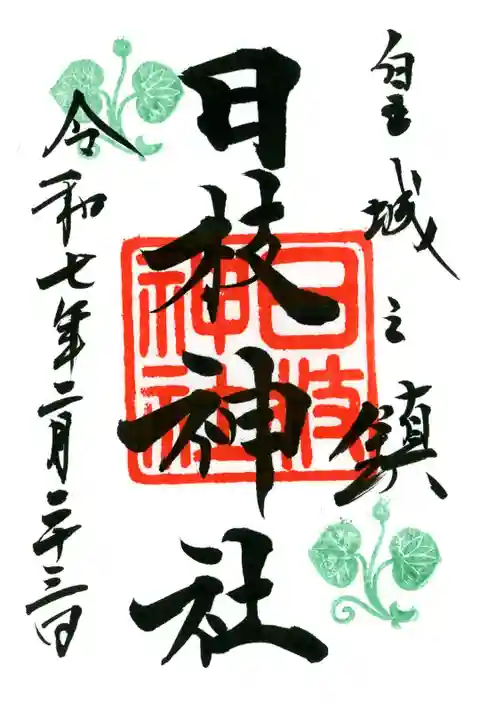 皇城之鎮
日枝神社
日枝
神社
令和七年二月二十三日